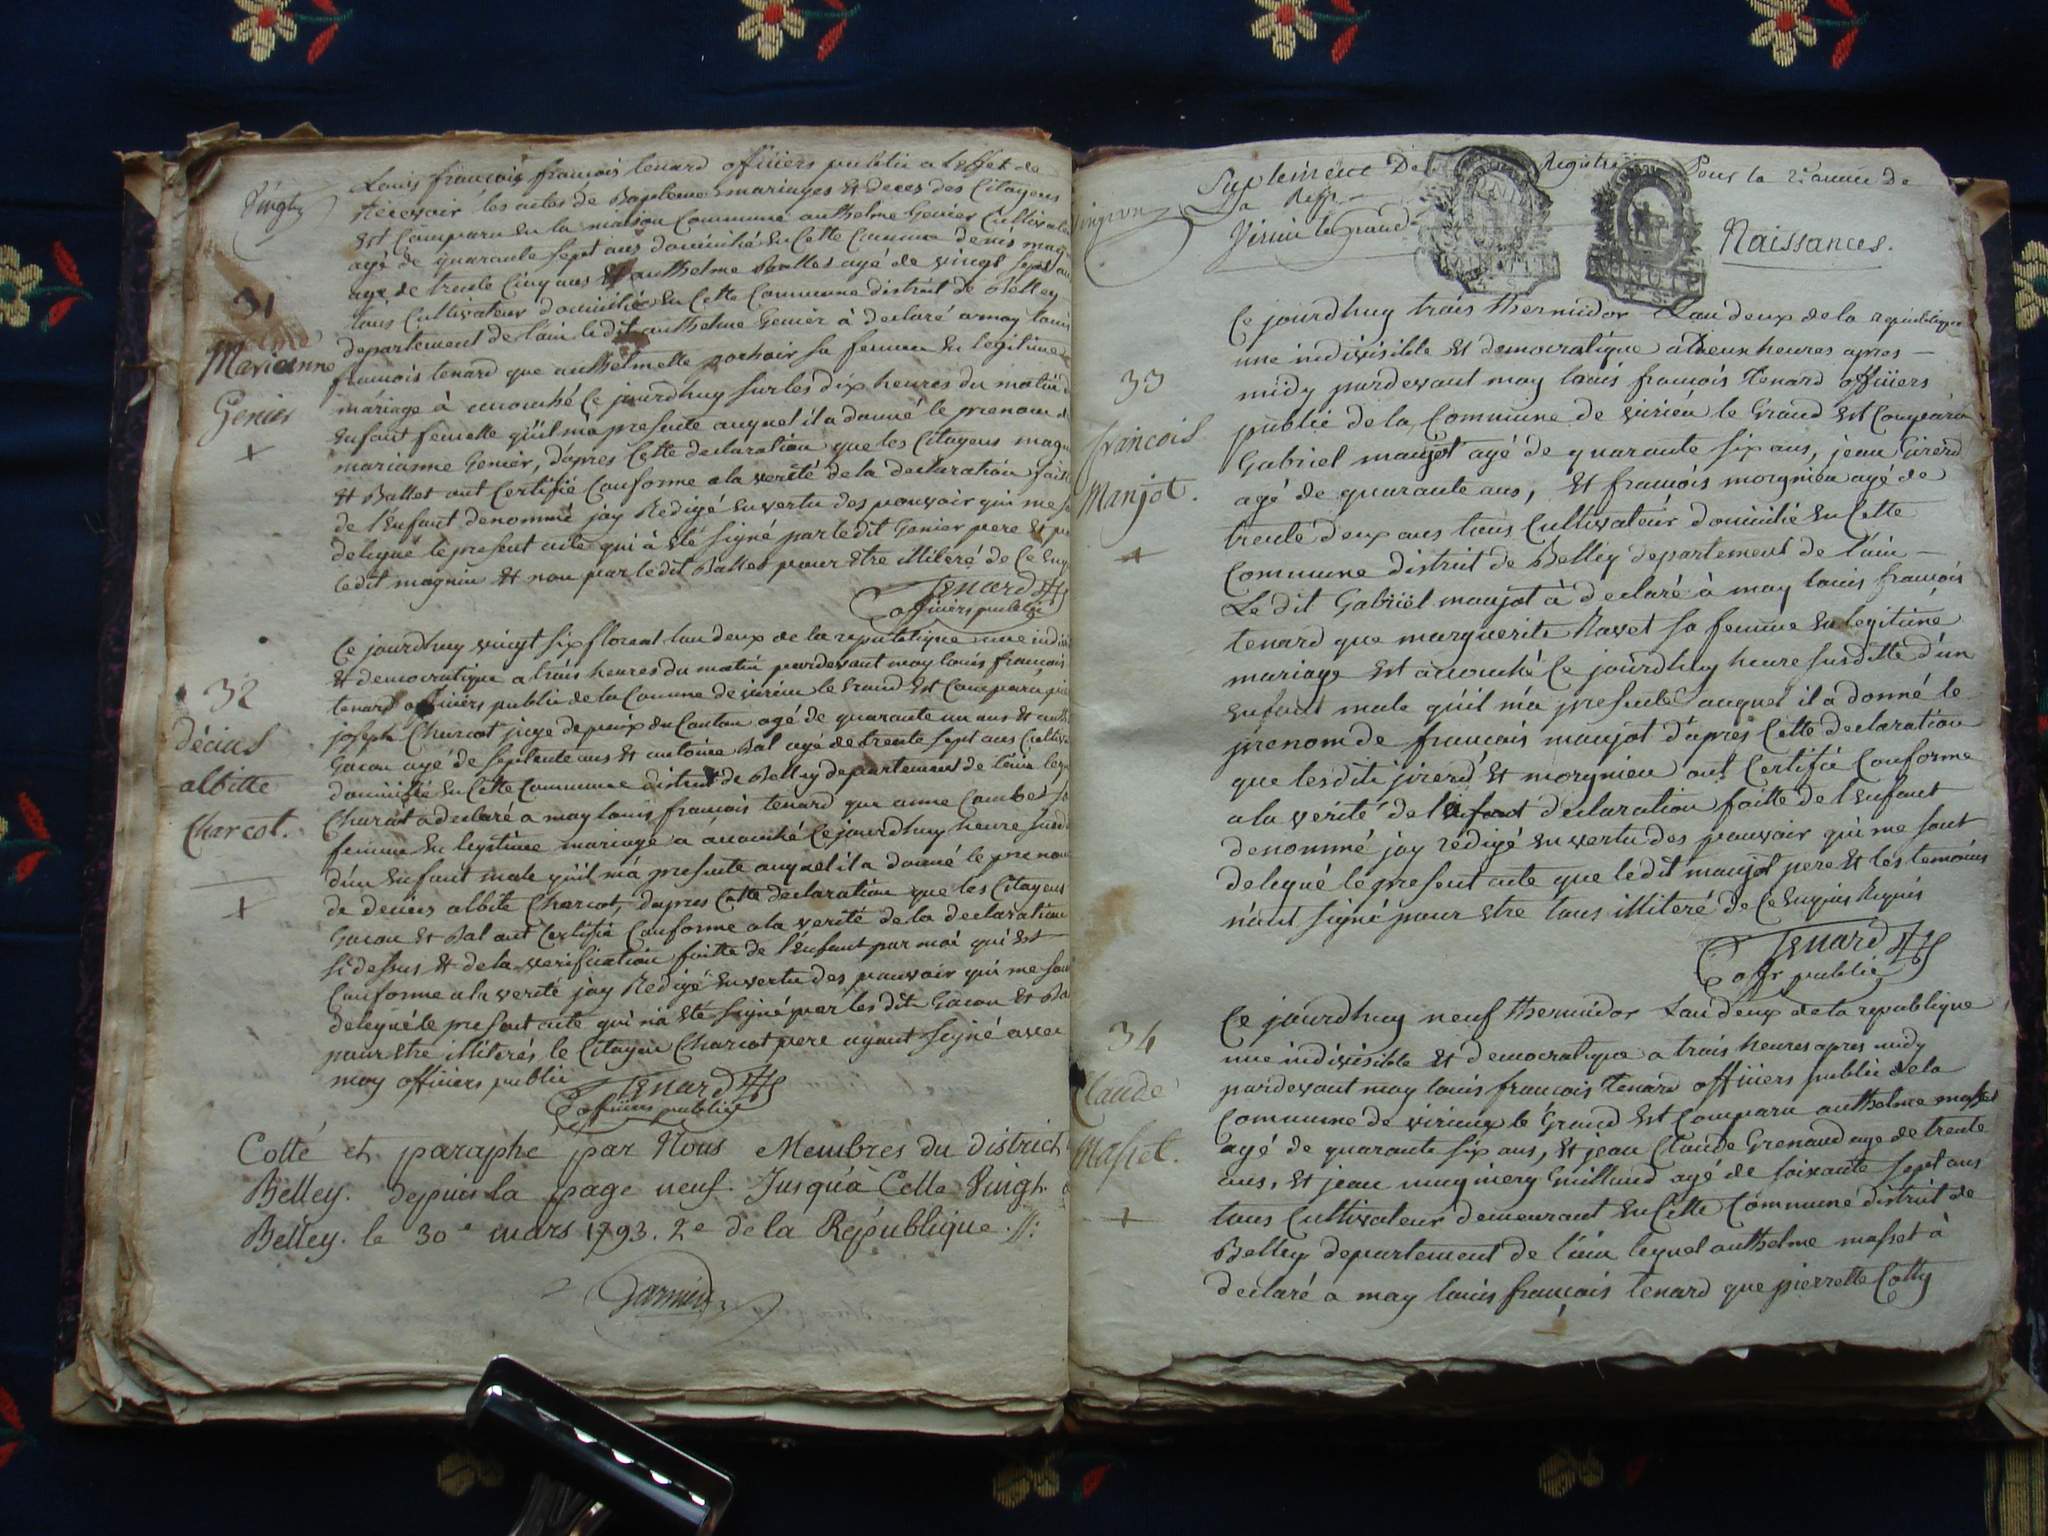 Vingt
Louis françois françois tenard officiers public a leffet de
Recevoir les actes de Bapteme mariages et deces des Citoyens
est Comparu en la maison Commune anthelme Genier Cultivateur
agé de quarante sept ans domicilié en Cette Commune denis
age de trente Cinq ans et anthelme Ballet agé de vingt sept ans
tous Cultivateur domicilié en Cette Commune district de Belley
departement de lain ledit anthelme Genier à declaré a moy louis
françois tenard que anthelmette pochoir sa femme en legitime
mariage à accouché Ce jourdhuy sur les dix heures du matin
enfant femelle quil ma presenté auquel il a donné le prenom de
marianne Genier, dapres Cette declaration que les Citoyens
et Ballet ont Certifié Conforme a la verité de la declaration faitte
de l'enfant denommé jay Redigé en vertu des pouvoir qui me
delegué le present acte qui à été signé par ledit Genier pere et
ledit magnin et non par ledit Ballet pour etre illiteré de Ce
31
Marianne
Genier
+
Tenard
officiers public
Ce jourdhuy vingt six floreal lan deux de la republique une
et democratique a trois heures du matin pardevant moy louis françois
tenard officiers public de la Comune de virieu le Grand est Comparu
joseph Charcot juge de paix du Canton agé de quarante un ans et
Gacon agé de septente ans et antoine Bal agé de trente sept ans
domicilié en Cette Commune district de Belley departement de lain
Charcot a declaré a moy louis françois tenard que anne Combet sa
femme en legitime mariage a accouché Ce jourdhuy heure
dun enfant male quil ma presenté auquel il a donné le prenom
de decius albite Charcot, dapres Cette declaration que les Citoyens
Gacon et Bal ont Certifié Conforme a la verité de la declaration
si dessus et de la verification faitte de l'enfant par moi qui est
Conforme a la verité jay Redigé en vertu des pouvoir qui me sont
delegué le present acte qui na été signé par les dit Gacon et Bal
pour etre illiterés le Citoyen Charcot pere ayant signé avec
moy officiers public
32
décius
albitte
Charcot.
+
Tenard
officiers public
Cotté et paraphé par Nous Membres du district
Belley. depuis la page neuf Jusqu'à Celle Vingt
Belley. le 30e mars 1793. 2e de la République
Suplément De Registre Pour la 2e année de
la Rép
Virieu le Grand
Naissances.
Ce jourdhuy trois thermidor Lan deux de la republique
une indivisible et democratique a heures apres
midy pardevant moy louis françois tenard officiers
public de la Commune de virieu le Grand est Comparu
Gabriel manjot agé de quarante six ans, jean Girerd
agé de quarante ans, et françois morgnieu agé de
trente deux ans tous Cultivateur domicilié en Cette
Commune district de Belley departement de l'ain
Le dit Gabriel manjot à declaré à moy louis françois
tenard que marguerite Ravet sa femme en legitime
mariage est accouché Ce jourdhuy heure susditte d'un
enfant male quil m'a presenté auquel il a donné le
prenom de françois manjot d'apres Cette declaration
que lesdit jirerd et morgnieu ont Certifié Conforme
a la verité de la declaration faitte de l'enfant
denommé jay rédigé en vertu des pouvoir qui me sont
delegué le present acte que ledit manjot pere et les temoins
n'ont signé pour etre tous illiteré de Ce enquis Requis
33
françois
Manjot.
+
Tenard
offr public
Ce jourdhuy neuf thermidor Lan deux de la republique
une indivisible et democratique a trois heures apres midy
pardevant moy louis françois tenard officiers public de la
Commune de virieux le Grand est Comparu anthelme masset
agé de quarante six ans, et jean Claude Grenaud age de trente
ans, et jean Guilland agé de soixante sept ans
tous Cultivateur demeurant en Cette Commune district de
Belley departement de l'ain lequel anthelme masset à
declaré a moy louis françois tenard que pierrette Cotty
34
Claude
Masset.
+